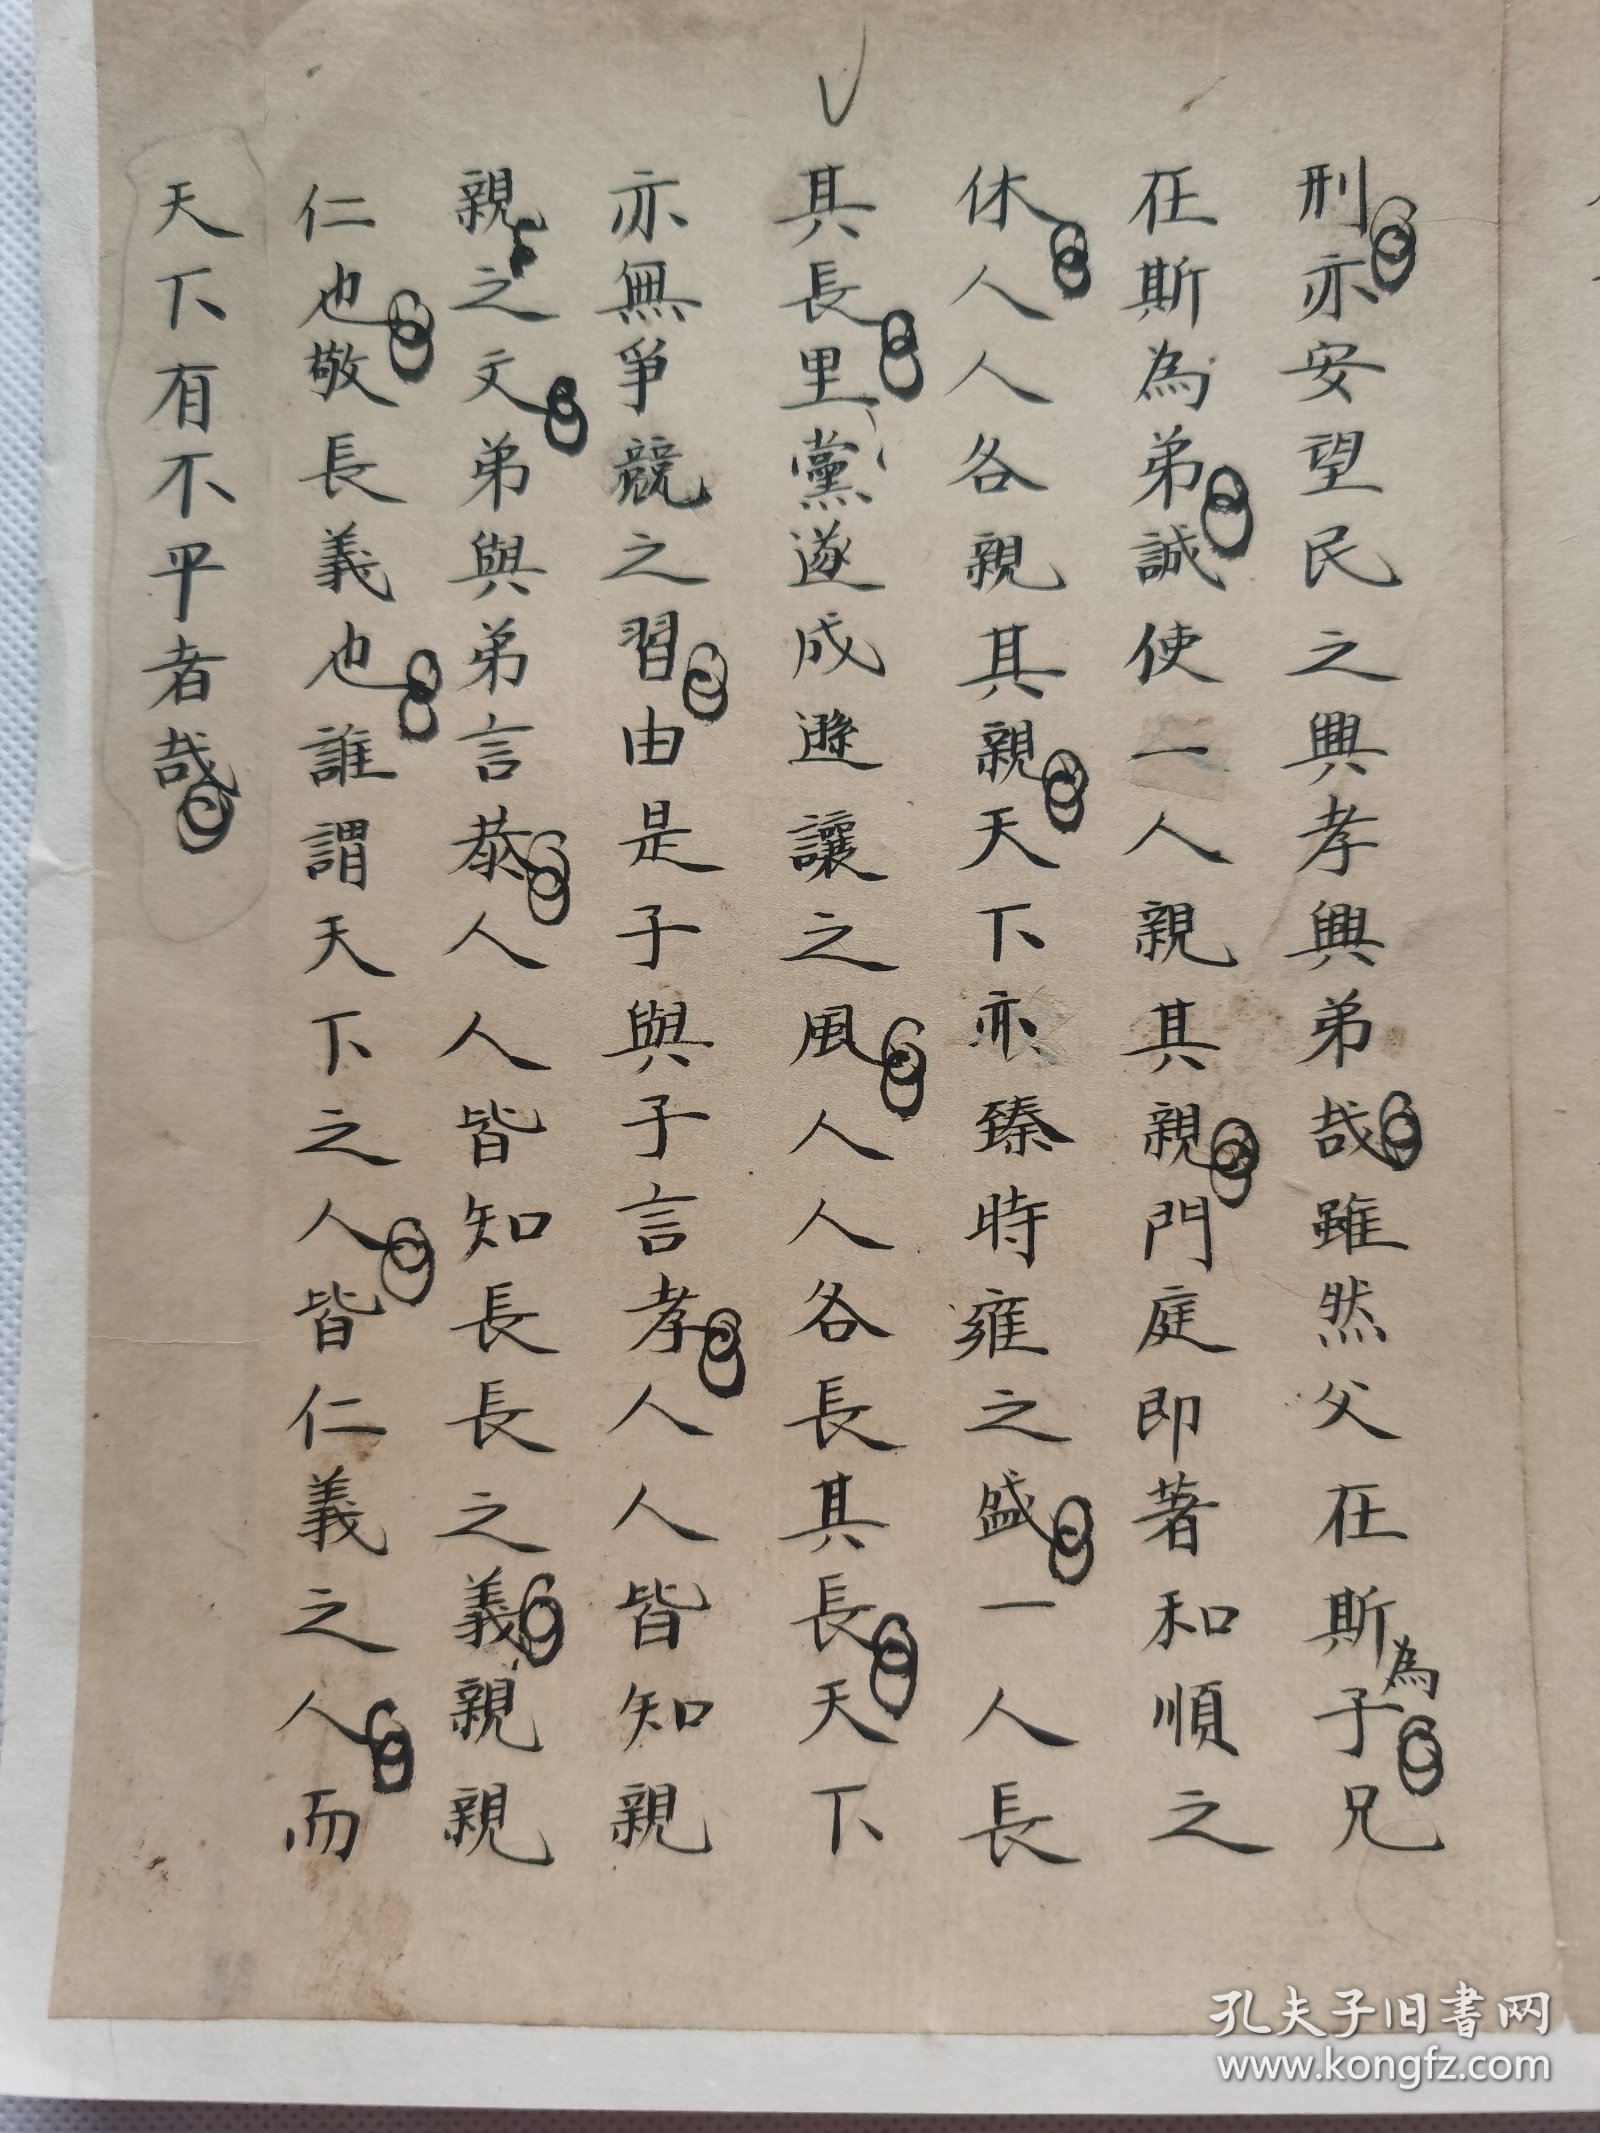 刑亦安望民之興孝興弟哉雖然父在斯為子兄
在斯為弟誠使一人親其親門庭即著和順之
休人人各親其親天下亦臻時雍之盛一人長
其長里黨遂成遜讓之風人人各長其長天下
亦無爭競之習由是子與子言孝人人皆知親
親之文弟與弟言恭人人皆知長長之義親親
仁也敬長義也誰謂天下之人皆仁義之人而
天下有不平者哉
孔夫子旧書网
www.kongfz.com